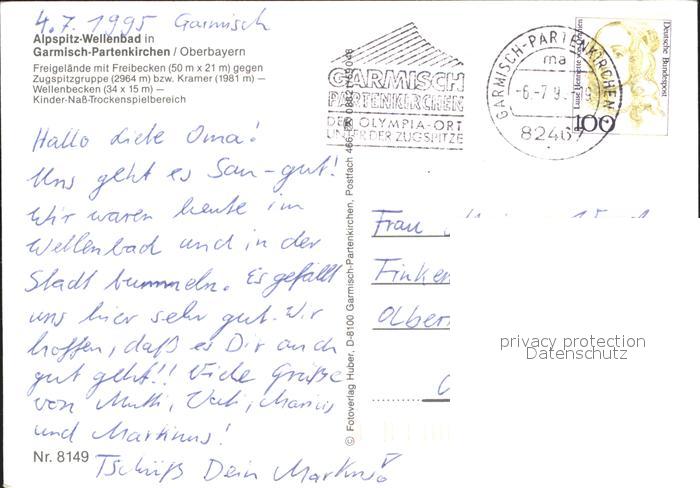 4.7.1995 Garmisch
Alpspitz-Wellenbad in
Garmisch-Partenkirchen / Oberbayern
Freigelände mit Freibecken (50 m x 21 m) gegen
Zugspitzgruppe (2964 m) bzw. Kramer (1981 m) —
Wellenbecken (34 x 15 m) —
Kinder-Naß-Trockenspielbereich
Hallo liebe Oma!
Uns geht es Sau-gut!
Wir waren heute im
Wellenbad und in der
Stadt bummeln. Es gefällt
uns hier sehr gut. Wir
hoffen, daß es Dir auch
gut geht!! Viele Grüße
von Mutti, Vati, Marius
und Markus!
Tschüß Dein Markus
Nr. 8149
© Fotoverlag Huber, D-8100 Garmisch-Partenkirchen, Postfach 466,
GARMISCH
PARTENKIRCHEN
DER OLYMPIA-ORT
UNTER DER ZUGSPITZE
GARMISCH-PARTENKIRCHEN
ma
-6.-7.9
82467
Deutsche Bundespost
100
Frau
Finken
Olber
privacy protection
Datenschutz